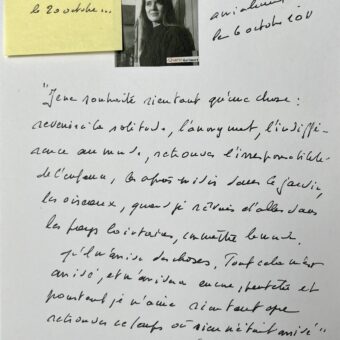 le 20 octobre...
le 6 octobre 2011
"Je ne souhaite rien tant qu'une chose :
la solitude, l'anonymat, l'indiffé-
rence au monde, retrouver l'irresponsabilité
de l'enfance, les après-midis dans le jardin,
les oiseaux, quand je rêvais d'aller dans
les pays lointains, connaître le monde.
qu'il m'arrive des choses. Tout cela m'est
arrivé, et m'arrivera encore, peut-être et
pourtant je n'aime rien tant que
retrouver ce temps où rien n'était arrivé"